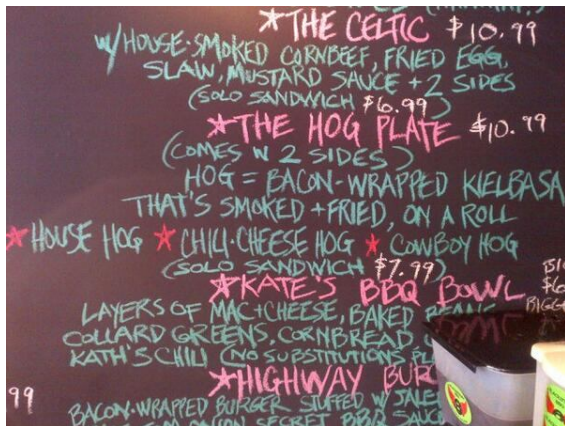 *THE CELTIC $10.99
W/HOUSE-SMOKED CORNBEEF, FRIED EGG,
SLAW, MUSTARD SAUCE + 2 SIDES
(SOLO SANDWICH $6.99)
*THE HOG PLATE $10.99
(COMES W 2 SIDES)
HOG = BACON-WRAPPED KIELBASA
THAT'S SMOKED + FRIED, ON A ROLL
*HOUSE HOG *CHILI-CHEESE HOG *COWBOY HOG
(SOLO SANDWICH $7.99)
*KATE'S BBQ BOWL
LAYERS OF MAC+CHEESE, BAKED BEANS,
COLLARD GREENS, CORNBREAD
KATH'S CHILI (NO SUBSTITUTIONS
*HIGHWAY
99
BACON-WRAPPED BURGER STUFFED W/
ONION SECRET BBQ